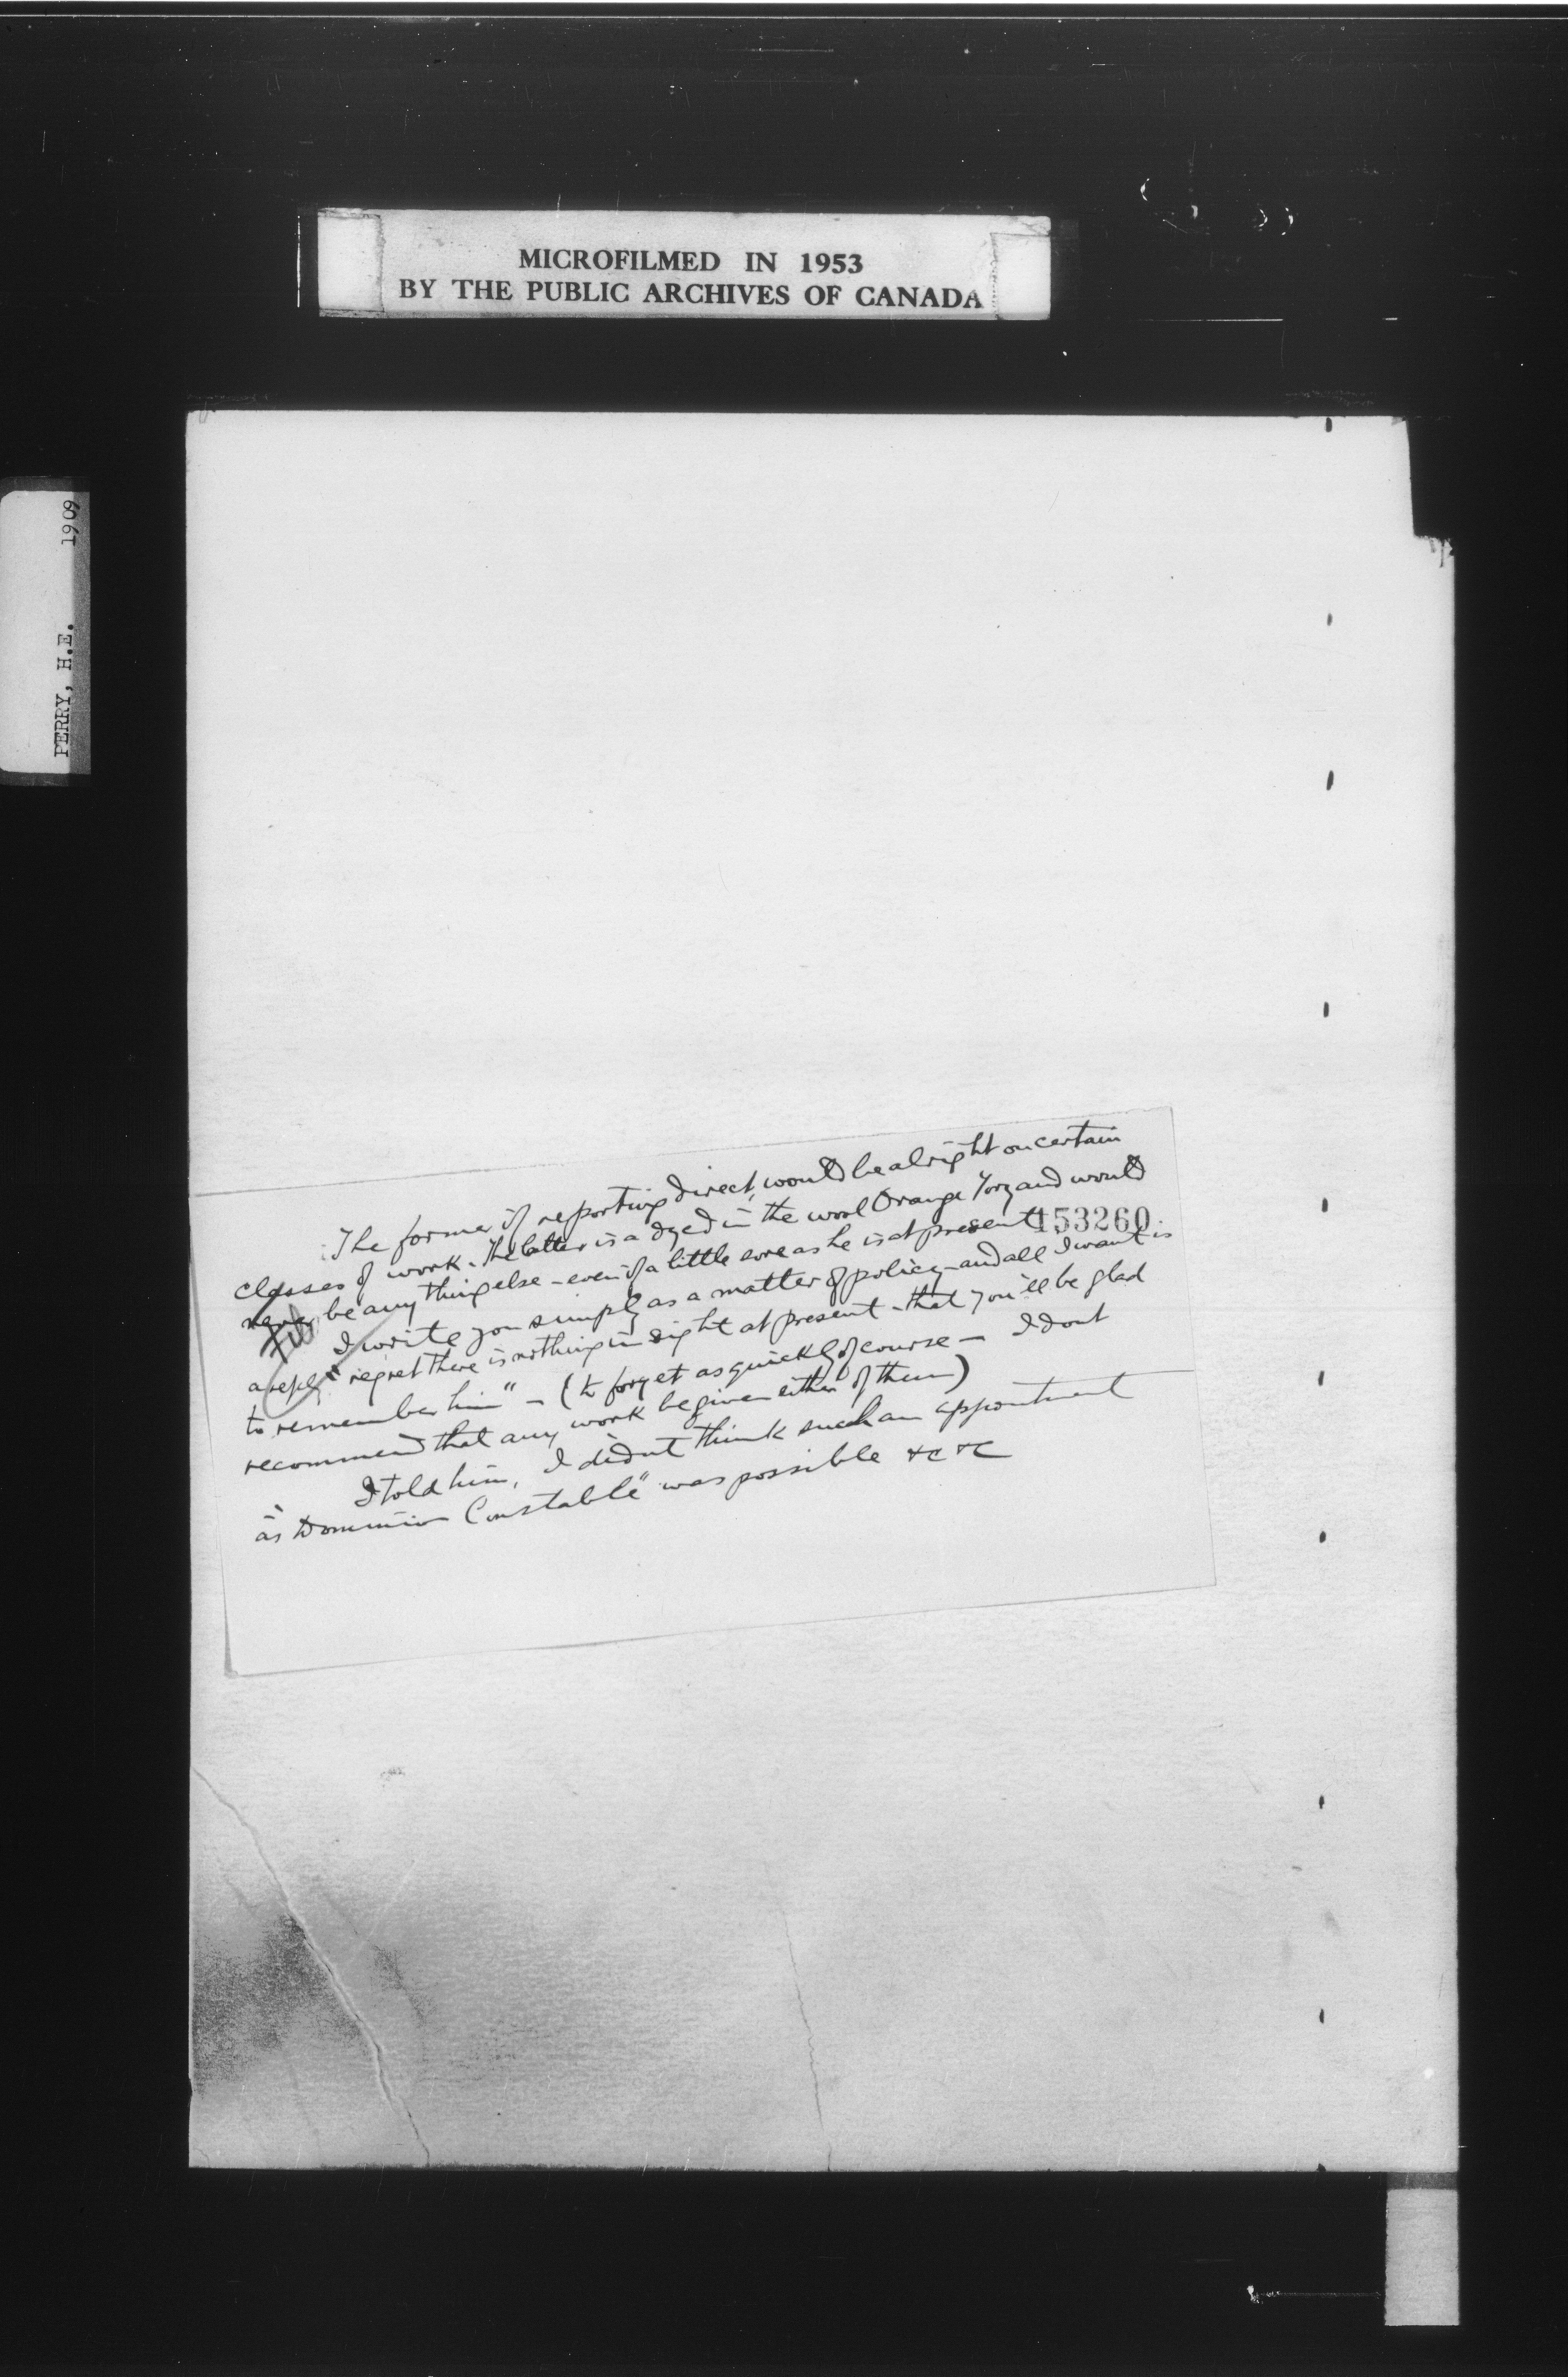 MICROFILMED IN 1953
BY THE PUBLIC ARCHIVES OF CANADA
PERRY, H.E. 1909
The former if reporting direct, would be alright on certain
classes of work. The latter is a dyed in the wool Orange Tory and would
never be any thing else - even if a little sore as he is at present
153260
File
I write you simply as a matter of policy - and all I want is
a reply "regret there is nothing in sight at present - that you'll be glad
to remember him" - (to forget as quickly of course - I dont
recommend that any work be given either of them)
I told him, I didnt think such an appointment
"as Dominion Constable" was possible &c &c